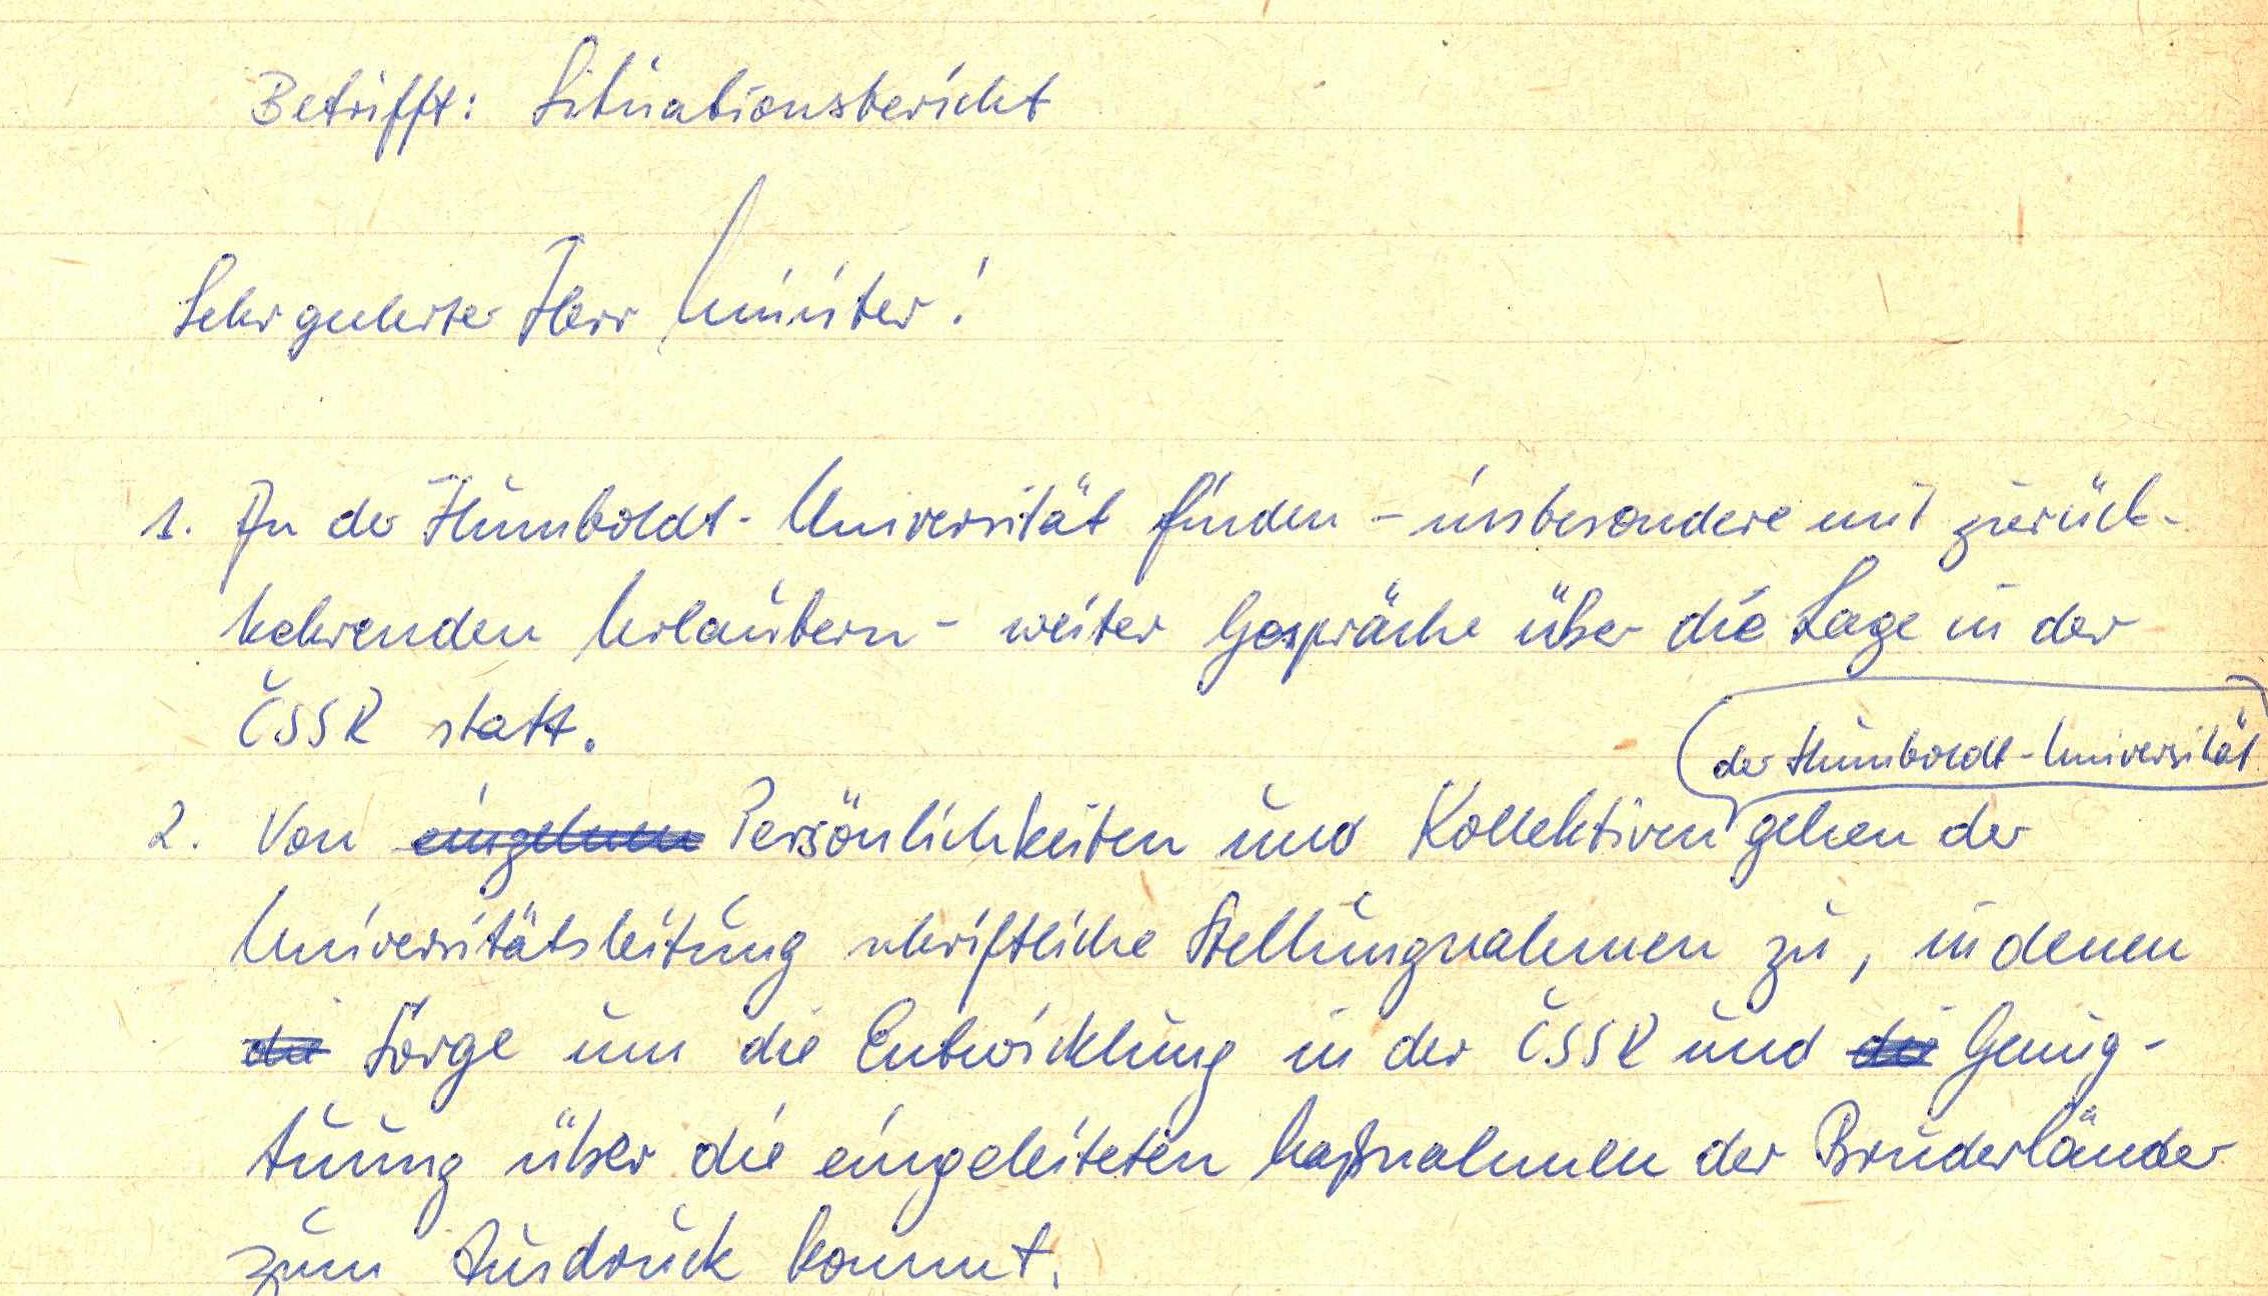 Betrifft: Situationsbericht
Sehr geehrter Herr Minister!
1. In der Humboldt-Universität finden - insbesondere mit zurück-
kehrenden Urlaubern - weiter Gespräche über die Lage in der
ČSSR statt.
der Humboldt-Universität
2. Von einzelnen Persönlichkeiten und Kollektiven gehen der
Universitätsleitung schriftliche Stellungnahmen zu, in denen
die Sorge um die Entwicklung in der ČSSR und die Genug-
tuung über die eingeleiteten Maßnahmen der Bruderländer
zum Ausdruck kommt.